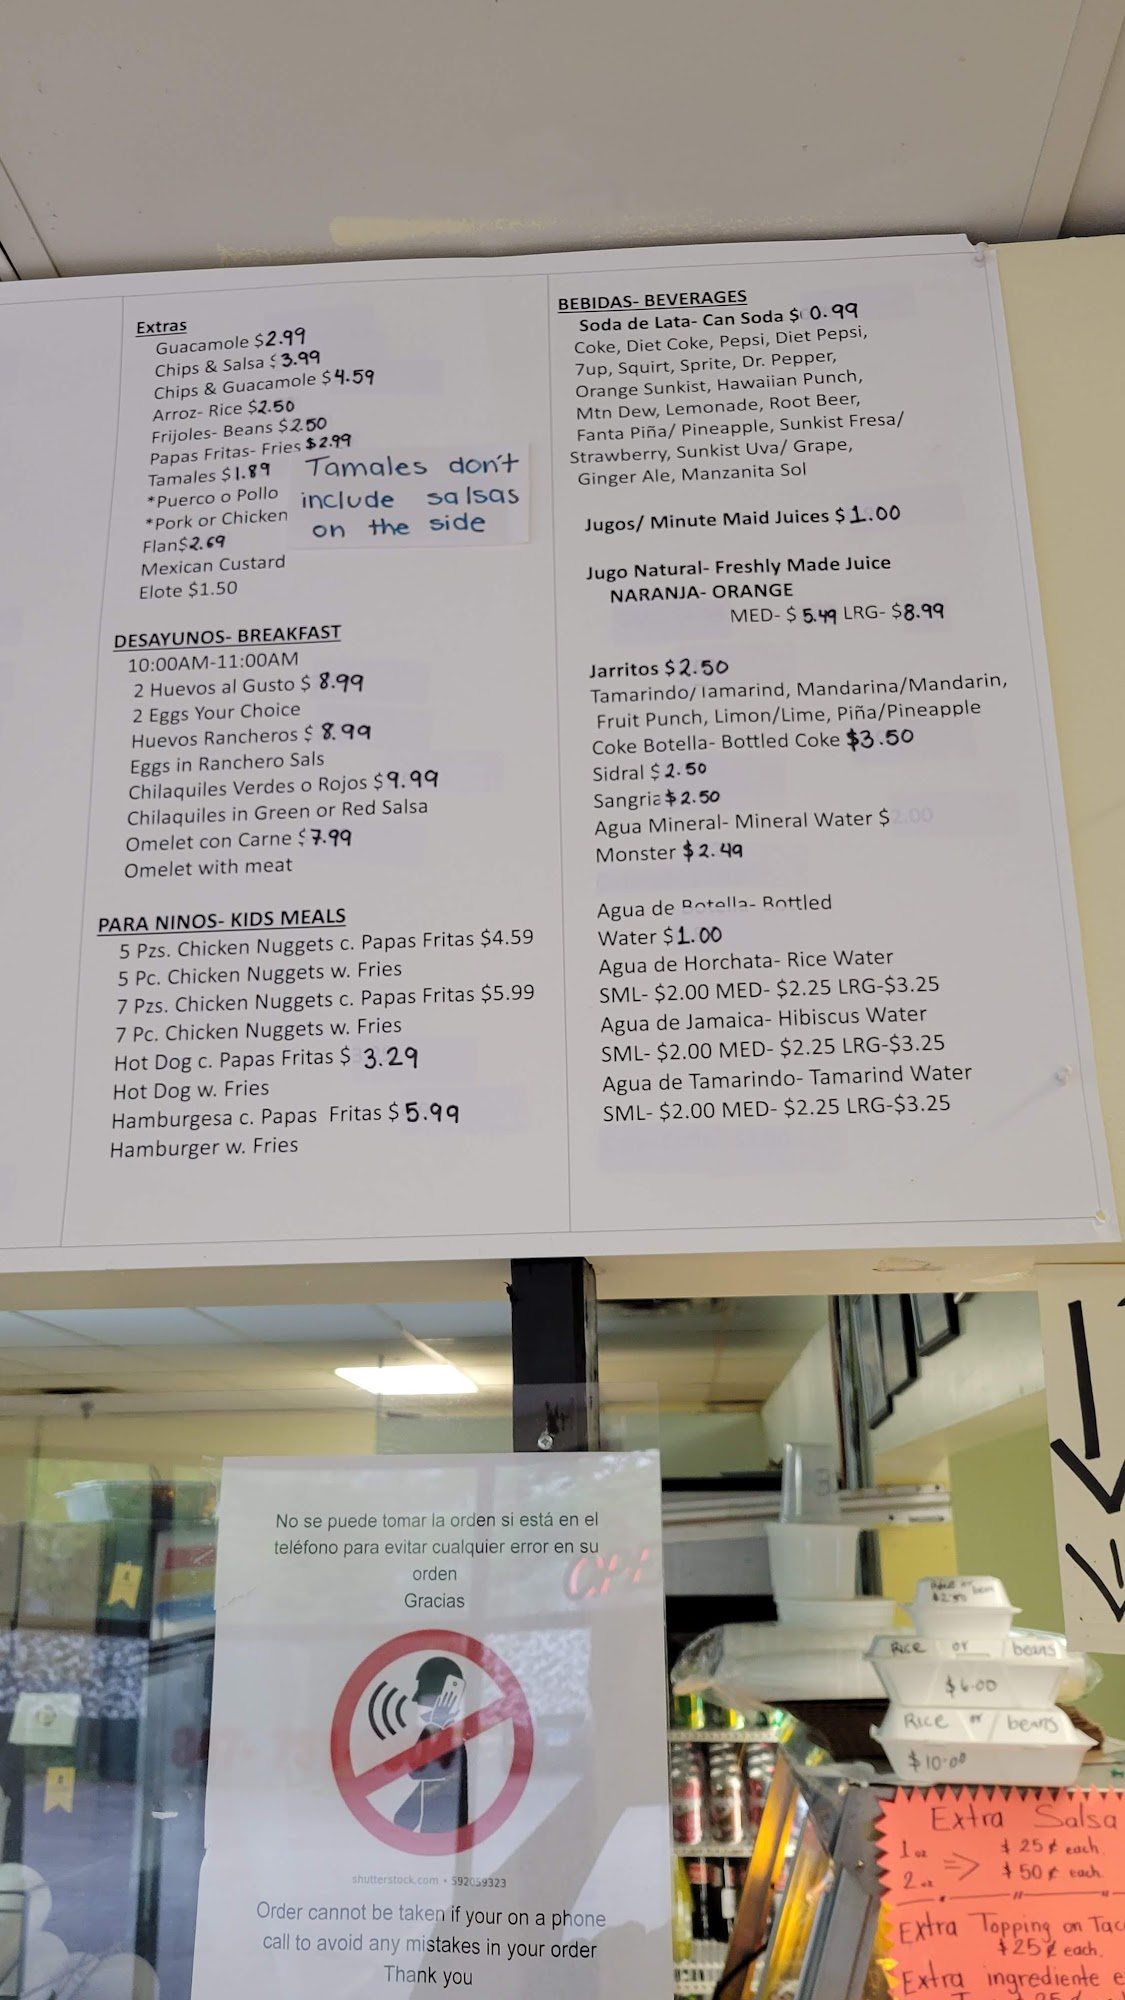 Extras
Guacamole $2.99
Chips & Salsa $3.99
Chips & Guacamole $4.59
Arroz- Rice $2.50
Frijoles- Beans $2.50
Papas Fritas- Fries $2.99
Tamales $1.89
*Puerco o Pollo
*Pork or Chicken
Flan$2.69
Mexican Custard
Elote $1.50
Tamales don't
include salsas
on the side
DESAYUNOS- BREAKFAST
10:00AM-11:00AM
2 Huevos al Gusto $ 8.99
2 Eggs Your Choice
Huevos Rancheros $ 8.99
Eggs in Ranchero Sals
Chilaquiles Verdes o Rojos $9.99
Chilaquiles in Green or Red Salsa
Omelet con Carne $7.99
Omelet with meat
PARA NINOS- KIDS MEALS
5 Pzs. Chicken Nuggets c. Papas Fritas $4.59
5 Pc. Chicken Nuggets w. Fries
7 Pzs. Chicken Nuggets c. Papas Fritas $5.99
7 Pc. Chicken Nuggets w. Fries
Hot Dog c. Papas Fritas $ 3.29
Hot Dog w. Fries
Hamburgesa c. Papas Fritas $5.99
Hamburger w. Fries
BEBIDAS- BEVERAGES
Soda de Lata- Can Soda $ 0.99
Coke, Diet Coke, Pepsi, Diet Pepsi,
7up, Squirt, Sprite, Dr. Pepper,
Orange Sunkist, Hawaiian Punch,
Mtn Dew, Lemonade, Root Beer,
Fanta Piña/ Pineapple, Sunkist Fresa/
Strawberry, Sunkist Uva/ Grape,
Ginger Ale, Manzanita Sol
Jugos/ Minute Maid Juices $1.00
Jugo Natural- Freshly Made Juice
NARANJA- ORANGE
MED- $ 5.49 LRG- $8.99
Jarritos $2.50
Tamarindo/Tamarind, Mandarina/Mandarin,
Fruit Punch, Limon/Lime, Piña/Pineapple
Coke Botella- Bottled Coke $3.50
Sidral $2.50
Sangria $2.50
Agua Mineral- Mineral Water $2.00
Monster $2.49
Agua de Botella- Bottled
Water $1.00
Agua de Horchata- Rice Water
SML- $2.00 MED- $2.25 LRG-$3.25
Agua de Jamaica- Hibiscus Water
SML- $2.00 MED- $2.25 LRG-$3.25
Agua de Tamarindo- Tamarind Water
SML- $2.00 MED- $2.25 LRG-$3.25
No se puede tomar la orden si está en el
teléfono para evitar cualquier error en su
orden
Gracias
shutterstock.com • 592059323
Order cannot be taken if your on a phone
call to avoid any mistakes in your order
Thank you
Rice or bean
$2.50
Rice or beans
$6.00
Rice or beans
$10.00
Extra Salsa
1 oz $25¢ each.
2 oz => $50¢ each
Extra Topping on Tac
$25¢ each.
Extra ingrediente e